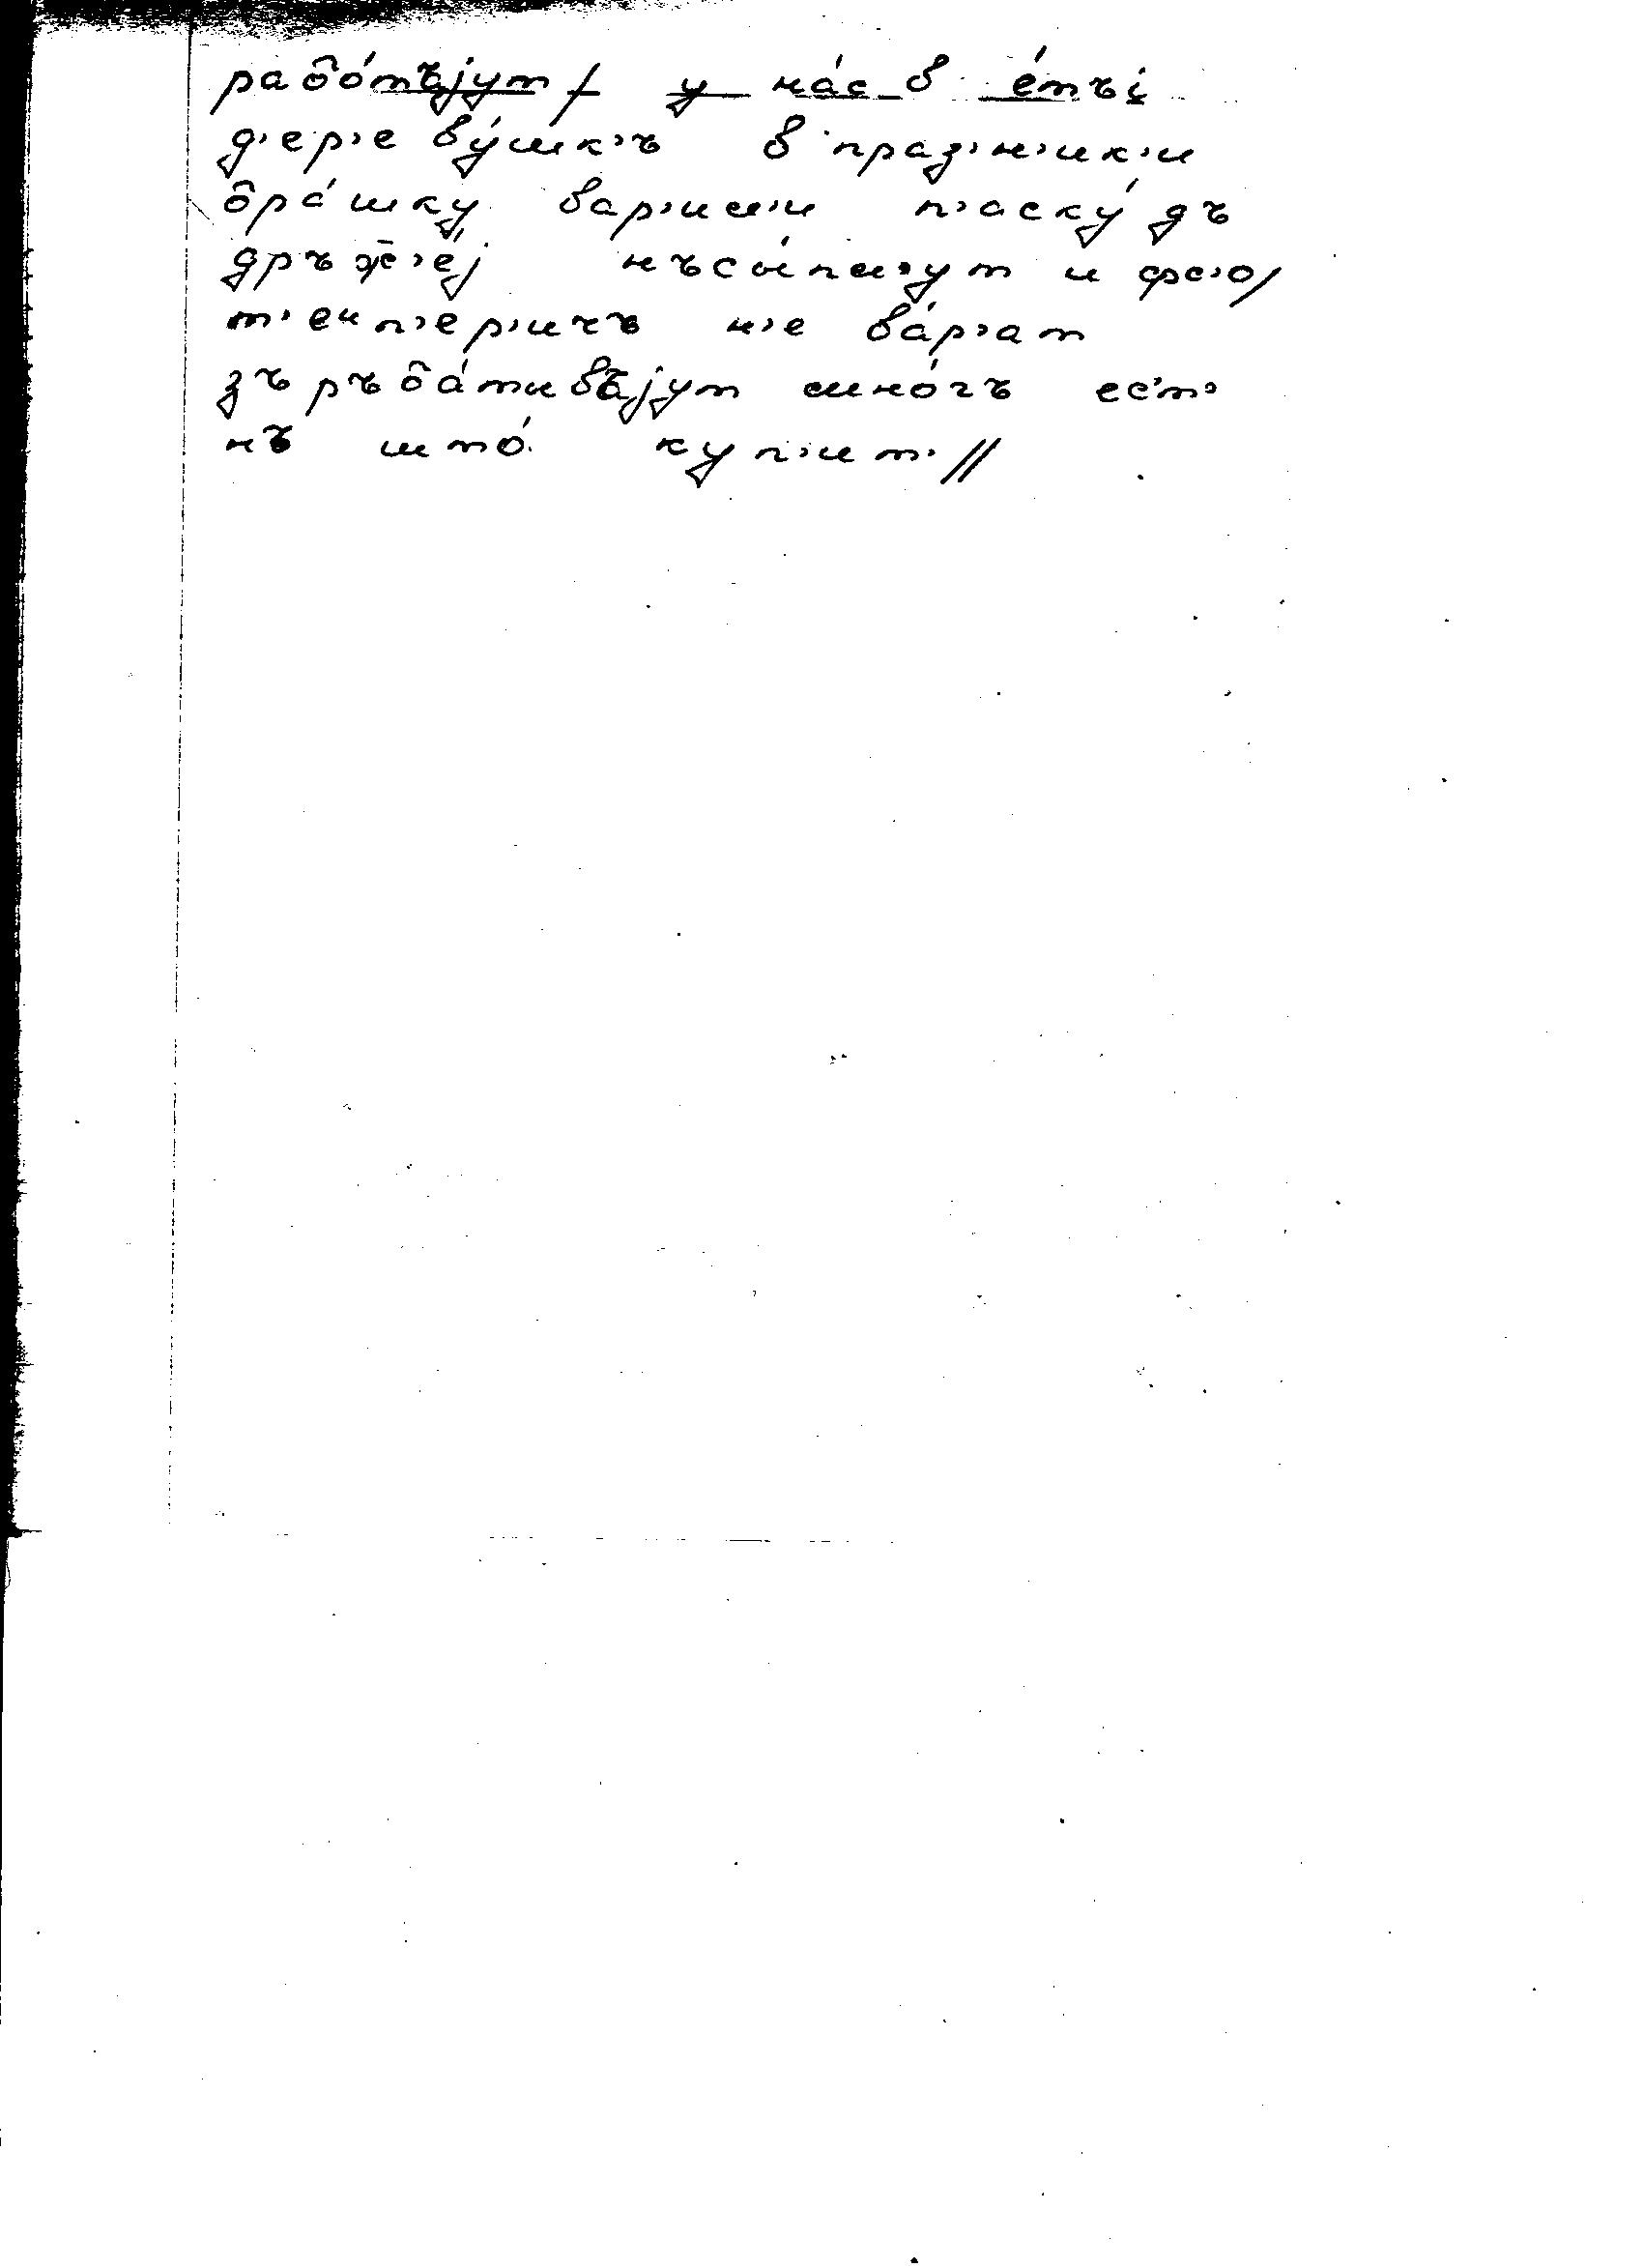 рабо́тъjут / у на́с в е́тъі
д'ер'е ву́шк'ъ в праз'н'ик'и
бра́шку вар'ил'и п'аску́ дъ
дръж'е́j нъсы́пл'ут и фс'о/
т'еип'ер'ичъ н'е ва́р'ат
зъ ръба́тывъjут мно́гъ ес'т'
нъ што́ куп'ит' //